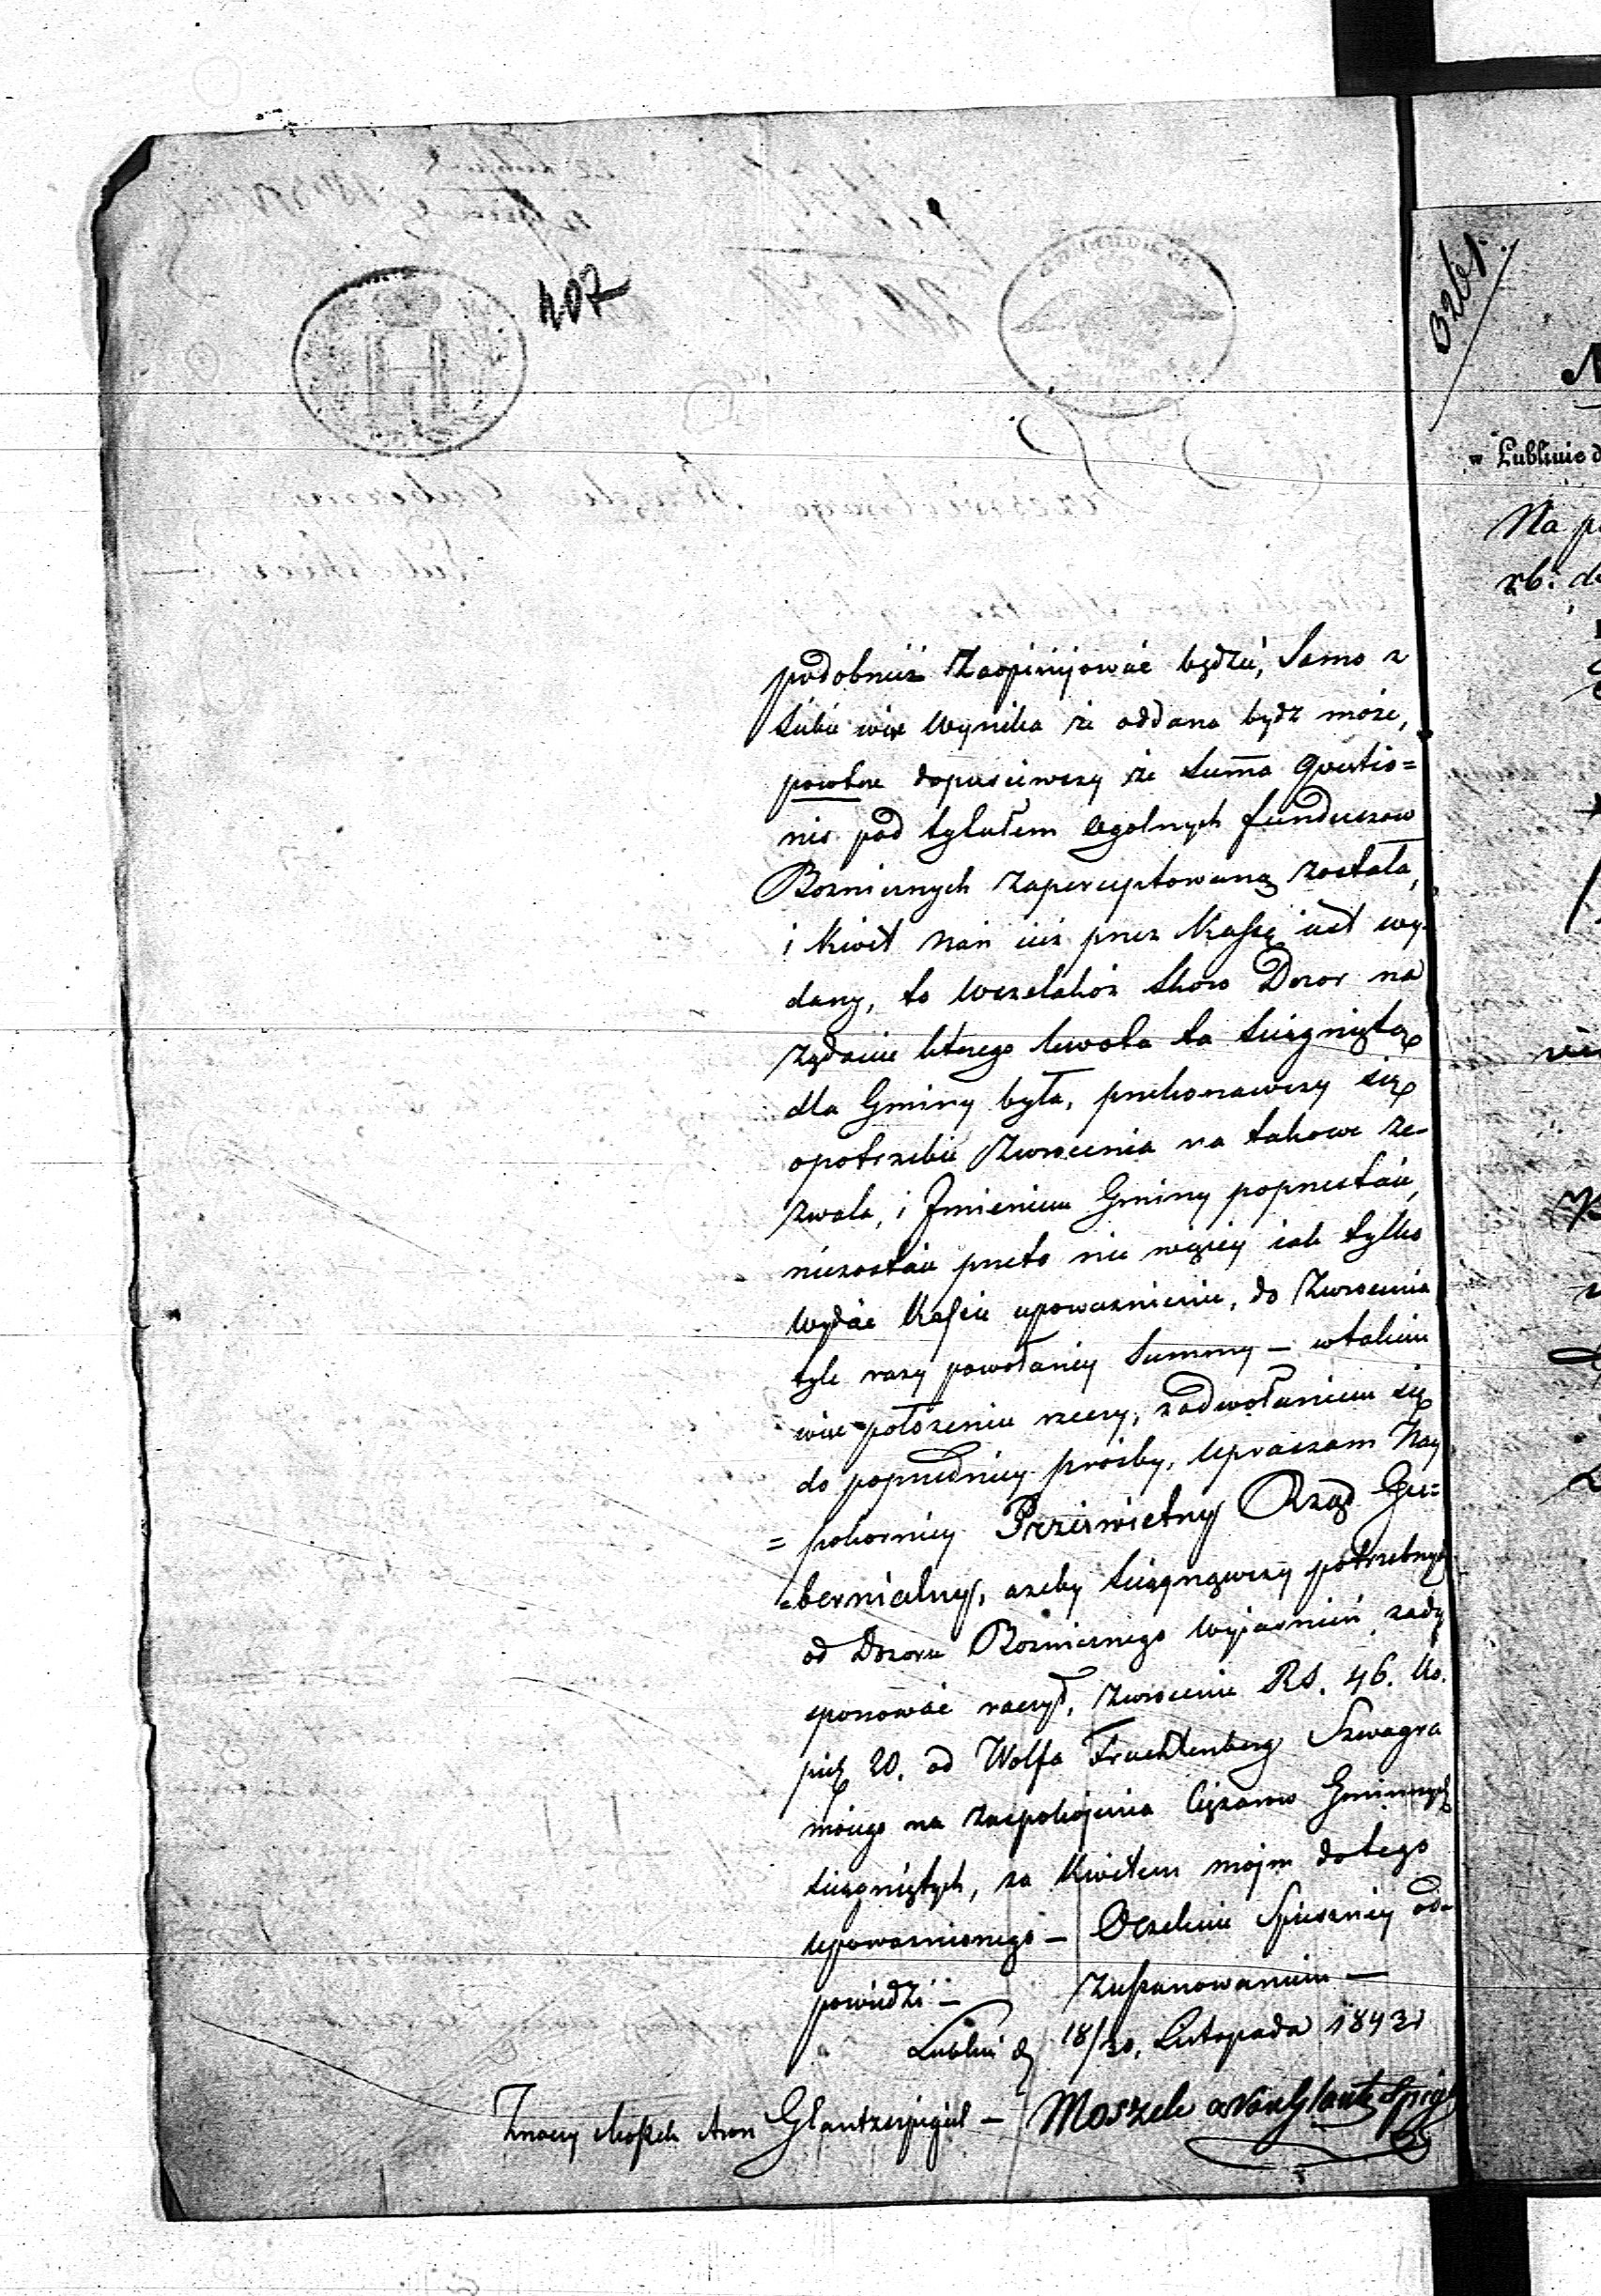 407
podobnież zaopinijować będzie, Samo z
siebie więc wynika że oddana bydź może,
powtóre dopuściwszy że Summa questio=
nis pod tytułem ogolnych funduszow
Bożnicznych zapercyptowaną została,
i kwit nań już przez Kassę jest wy-
dany, to wszelakóż skoro Dozor na
żądanie ktorego kwota ta ściągniętą
dla Gminy była, przekonawszy się
opotrzebie zwrócenia na takowe ze-
zwala, i Imieniem Gminy poprzestaie,
niezostaie przeto nic więcey iak tylko
wydać Kassie upoważnienie, do zwrócenia
tyle razy powołaney Summy — wtakiem
więc położeniu rzeczy, zodwołaniem się
do poprzedniey prośby, upraszam Nay
= pokorniey Prześwietny Rząd Gu=
=bernialny, ażeby ściągnąwszy potrzebnych
od Dozoru Bożnicznego wyiaśnień, zady
sponować raczył, zwrócenie RS. 46. ko.
piek 20. od Wolfa Fruchtenberg Szwagra
moiego na zaspokojenia Ciężarow Gminnych
ściągniętych, za kwitem mojm dotego
upoważnionego — Oczekuie Spieszney od-
powiedzi — zuszanowaniem —
Lublin d 18/30. Listopada 1843 r
Znaczy Moszek Aron Glantzszpigiel — Moszek Aron Glantzspigel
3261.
w Lublinie d
Na p
rb. d